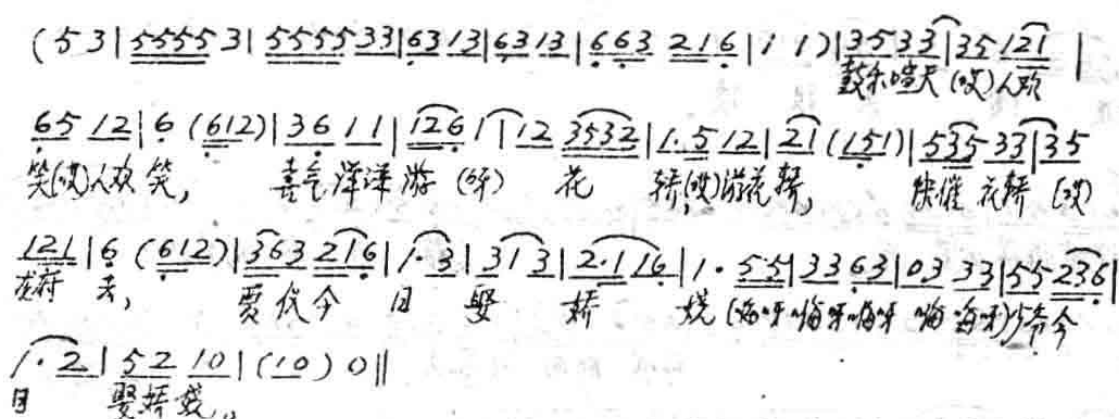 (5 3 | 5555 3 | 5555 33 | 63 13 | 63 13 | 663 216 | 1 1) | 35 33 | 35 121 |
鼓乐喧天 (哎) 人欢
65 12 | 6 (612) | 36 11 | 126 1 | 12 3532 | 1.5 12 | 21 (151) | 535 33 | 35
笑(哎)人欢 笑, 喜气洋洋 游 (呀) 花 轿(哎)游花轿, 快催 花轿 (哎)
121 | 6 (612) | 363 216 | 1·3 | 313 | 2·116 | 1· 55 | 33 63 | 03 33 | 55 236 |
府 去, 贾 今 日 娶 娇 娆 (嗨呀嗨呀嗨呀 嗨 嗨呀) 今
1· 2 | 52 10 | (10) 0 ‖
日 娶娇娆。